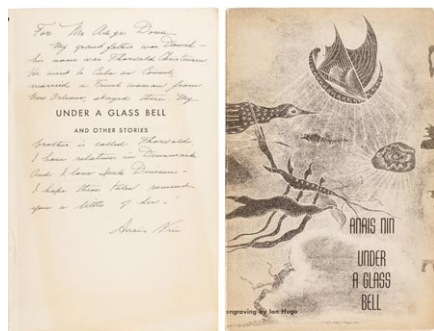 For Mr Aage Dons
My grand father was Danish -
his name was Thorvald Christensen
He went to Cuba as Consul,
married a French woman from
New Orleans, stayed there. My
UNDER A GLASS BELL
AND OTHER STORIES
brother is called Thorvald
I have relatives in Denmark
And I love Isak Dinesen -
I hope these Tales remind
you a little of her.
Anais Nin
ANAIS NIN
UNDER
A GLASS
BELL
engraving by Ian Hugo